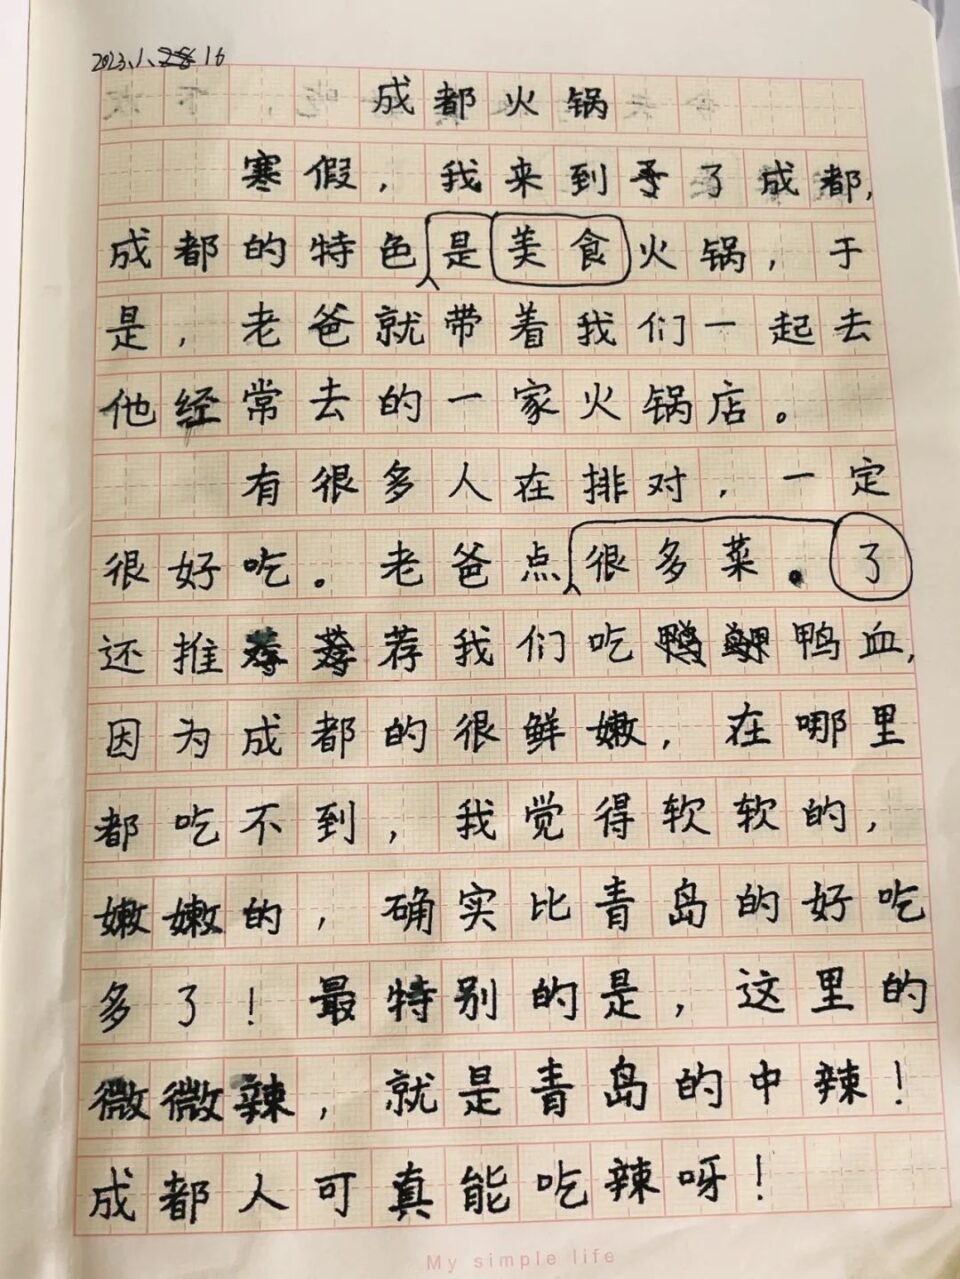 2023.1.28 16
成都火锅
寒假，我来到予了成都，
成都的特色是美食火锅，于
是，老爸就带着我们一起去
他经常去的一家火锅店。
有很多人在排对，一定
很好吃。老爸点很多菜。了
还推荐我们吃鸭血，
因为成都的很鲜嫩，在哪里
都吃不到，我觉得软软的，
嫩嫩的，确实比青岛的好吃
多了！最特别的是，这里的
微微辣，就是青岛的中辣！
成都人可真能吃辣呀！
My simple life